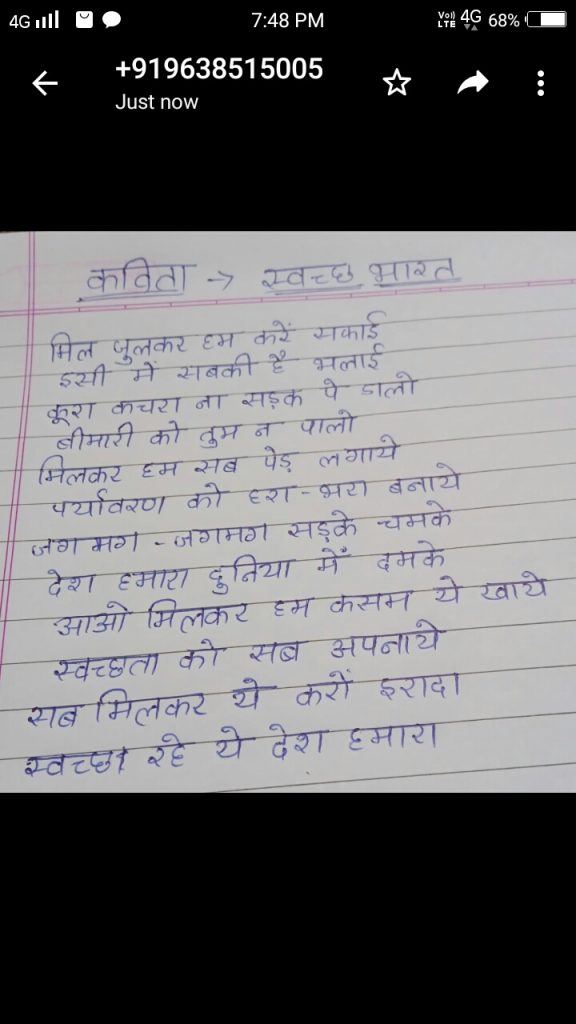 4G 7:48 PM Vo) LTE 4G 68%
+919638515005
Just now
कविता → स्वच्छ भारत
मिल जुलकर हम करें सफाई
इसी में सबकी है भलाई
कूरा कचरा ना सड़क पे डालो
बीमारी को तुम न पालो
मिलकर हम सब पेड़ लगाये
पर्यावरण को हरा-भरा बनाये
जग मग - जगमग सड़के चमके
देश हमारा दुनिया में दमके
आओ मिलकर हम कसम ये खाये
स्वच्छता को सब अपनाये
सब मिलकर ये करों इरादा
स्वच्छा रहे ये देश हमारा